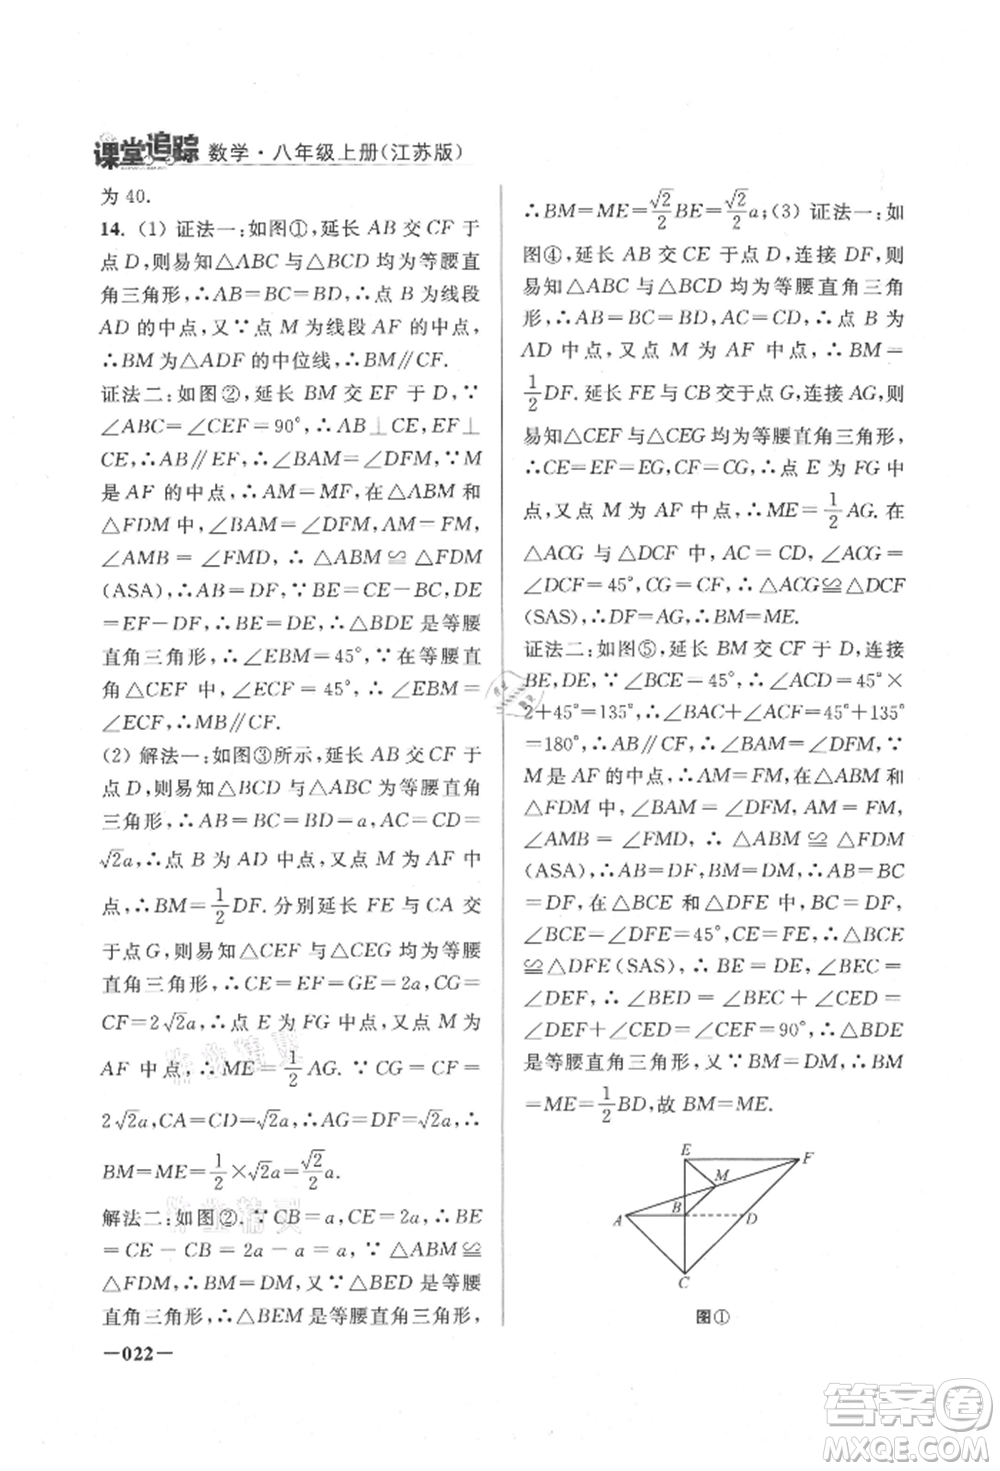 课堂追踪 数学·八年级上册(江苏版)
为 40.
14. (1) 证法一:如图①,延长 AB 交 CF 于
点 D,则易知△ABC 与△BCD 均为等腰直
角三角形,∴AB=BC=BD,∴点 B 为线段
AD 的中点,又∵点 M 为线段 AF 的中点,
∴BM 为△ADF 的中位线,∴BM∥CF.
证法二:如图②,延长 BM 交 EF 于 D,∵
∠ABC=∠CEF=90°,∴AB⊥CE,EF⊥
CE,∴AB∥EF,∴∠BAM=∠DFM,∵M
是 AF 的中点,∴AM=MF,在△ABM 和
△FDM 中,∠BAM=∠DFM,AM=FM,
∠AMB=∠FMD,∴△ABM≌△FDM
(ASA),∴AB=DF,∵BE=CE−BC,DE=
EF−DF,∴BE=DE,∴△BDE 是等腰
直角三角形,∴∠EBM=45°,∵在等腰直
角△CEF 中,∠ECF=45°,∴∠EBM=
∠ECF,∴MB∥CF.
(2) 解法一:如图③所示,延长 AB 交 CF 于
点 D,则易知△BCD 与△ABC 为等腰直角
三角形,∴AB=BC=BD=a,AC=CD=
√2a,∴点 B 为 AD 中点,又点 M 为 AF 中
点,∴BM=1/2DF.分别延长 FE 与 CA 交
于点 G,则易知△CEF 与△CEG 均为等腰
直角三角形,∴CE=EF=GE=2a,CG=
CF=2√2a,∴点 E 为 FG 中点,又点 M 为
AF 中点,∴ME=1/2AG.∵CG=CF=
2√2a,CA=CD=√2a,∴AG=DF=√2a,∴
BM=ME=1/2×√2a=√2/2a.
解法二:如图②.∵CB=a,CE=2a,∴BE
=CE−CB=2a−a=a,∵△ABM≌
△FDM,∴BM=DM,又∵△BED 是等腰
直角三角形,∴△BEM 是等腰直角三角形,
—022—
∴BM=ME=√2/2BE=√2/2a;(3) 证法一:如
图④,延长 AB 交 CE 于点 D,连接 DF,则
易知△ABC 与△BCD 均为等腰直角三角
形,∴AB=BC=BD,AC=CD,∴点 B 为
AD 中点,又点 M 为 AF 中点,∴BM=
1/2DF.延长 FE 与 CB 交于点 G,连接 AG,则
易知△CEF 与△CEG 均为等腰直角三角形,
∴CE=EF=EG,CF=CG,∴点 E 为 FG 中
点,又点 M 为 AF 中点,∴ME=1/2AG.在
△ACG 与△DCF 中,AC=CD,∠ACG=
∠DCF=45°,CG=CF,∴△ACG≌△DCF
(SAS),∴DF=AG,∴BM=ME.
证法二:如图⑤,延长 BM 交 CF 于 D,连接
BE,DE,∵∠BCE=45°,∴∠ACD=45°×
2+45°=135°,∴∠BAC+∠ACF=45°+135°
=180°,∴AB∥CF,∴∠BAM=∠DFM,∵
M 是 AF 的中点,∴AM=FM,在△ABM 和
△FDM 中,∠BAM=∠DFM,AM=FM,
∠AMB=∠FMD,∴△ABM≌△FDM
(ASA),∴AB=DF,BM=DM,∴AB=BC
=DF,在△BCE 与△DFE 中,BC=DF,
∠BCE=∠DFE=45°,CE=FE,∴△BCE
≌△DFE(SAS),∴BE=DE,∠BEC=
∠DEF,∴∠BED=∠BEC+∠CED=
∠DEF+∠CED=∠CEF=90°,∴△BDE
是等腰直角三角形,又∵BM=DM,∴BM
=ME=1/2BD,故 BM=ME.
E
F
M
A
B
D
C
图①
作业精灵
答案圈
MXQE.COM